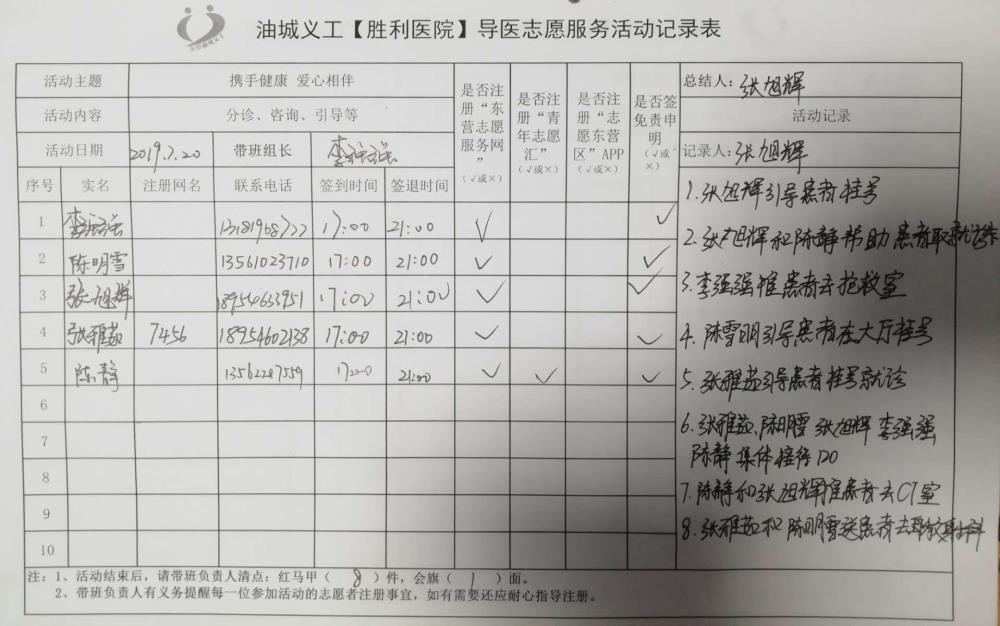 油城义工【胜利医院】导医志愿服务活动记录表
活动主题 携手健康 爱心相伴
活动内容 分诊、咨询、引导等
活动日期 2019.7.20 带班组长 李强强
序号 实名 注册网名 联系电话 签到时间 签退时间
是否注册“东营志愿服务网” (√或×)
是否注册“青年志愿汇” (√或×)
是否注册“志愿东营区”APP (√或×)
是否签免责申明 (√或×)
1 李强强 13181968777 17:00 21:00 √ √
2 陈明雪 13561023710 17:00 21:00 √ √
3 张旭辉 18954633951 17:00 21:00 √ √
4 张雅茹 7456 18954602138 17:00 21:00 √ √
5 陈静 13562287559 17:00 21:00 √ √ √
6
7
8
9
10
总结人：张旭辉
活动记录
记录人：张旭辉
1.张旭辉引导患者挂号
2.张旭辉和陈静帮助患者取就诊卡
3.李强强推患者去抢救室
4.陈雪明引导患者在大厅挂号
5.张雅茹引导患者挂号就诊
6.张雅茹、陈明雪 张旭辉 李强强
陈静 集体接待120
7.陈静和张旭辉推患者去CT室
8.张雅茹和陈明雪送患者去
注：1、活动结束后，请带班负责人清点：红马甲（ 8 ）件，会旗（ 1 ）面。
2、带班负责人有义务提醒每一位参加活动的志愿者注册事宜，如有需要还应耐心指导注册。